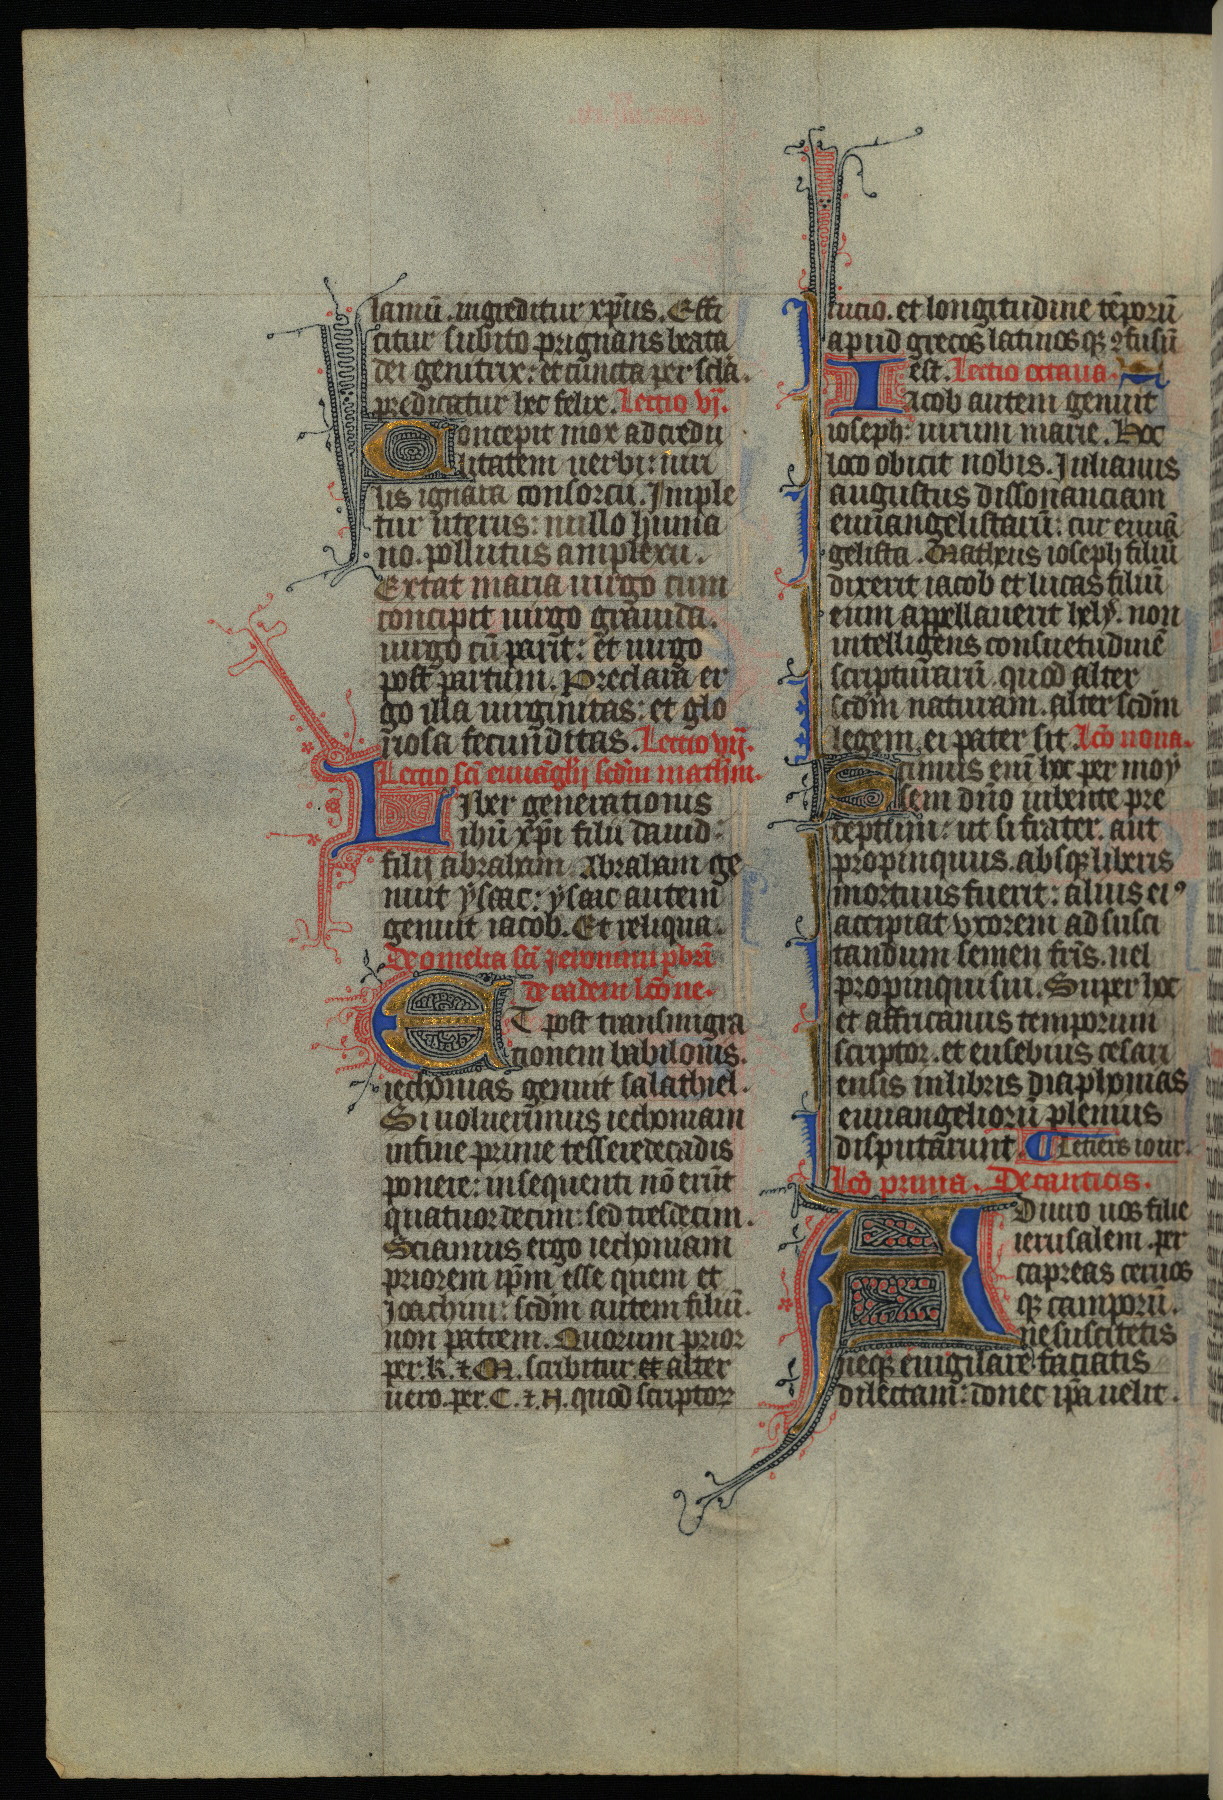 lamū. ingreditur xp̄us. Effi
titur subito p̄rignans beata
dei genitrix: et cuncta per sclā.
predicatur hec felix. Lectio vj.
Concepit mox ad credu
litatem uerbi: uiri
lis ignara consorcii. Imple
tur uterus: nullo huma
no. pollutus amplexu.
Extat maria uirgo cum
concipit uirgo grauida.
uirgo cū parit: et uirgo
post partum. Preclara er
go illa uirginitas: et glo
riosa fecunditas. Lectio vij.
Lectio scī euuāglij scdm mathm.
Liber generationis
ihū xp̄i filii dauid:
filij abraham. Abraham ge
nuit ysaac: ysaac autem
genuit iacob. Et reliqua.
De omelia scī Jeronimi pbrī
de eadem lcōne.
Et post transmigra
tionem babilonis.
iechonias genuit salathiel.
Si uoluerimus iechoniam
in fine prime tesseredecadis
ponere: in sequenti nō erūt
quatuordecim: sed tresdecim.
Sciamus ergo iechoniam
priorem ip̄m esse quem et
Joachim: scdm autem filiū.
non patrem. Quorum prior
per. K. ⁊. M. scribitur et alter
uero. per. C. ⁊. N. quod scriptoꝝ
uitio. et longitudine tēporū
apud grecos latinosqꝫ ꝯfusū
est. Lectio octaua.
Iacob autem genuit
ioseph: uirum marie. Hoc
loco obicit nobis. Julianus
augustus dissonanciam
euuangelistarū: cur euuā
gelista. Matheus ioseph filiū
dixerit iacob et lucas filiū
eum appellauerit hely. non
intelligens consuetudinē
scripturarū. quod alter
scdm naturam. alter scdm
legem. ei pater sit. Lcō nona.
Scimus enī hoc per moy
sem dn̄o iubente pre
ceptum: ut si frater. aut
propinquus. absqꝫ liberis
mortuus fuerit: alius eiꝰ
accipiat vxorem ad susci
tandum semen fr̄is. uel
propinqui sui. Super hoc
et affricanus temporum
scriptor. et eusebius cesari
ensis in libris diaphonias
euuangeliorū plenius
disputarunt. ¶ Letters iour.
Lcō prima. De canticis.
Adiuro uos filie
ierusalem. per
capreas ceruos
qꝫ camporū.
ne suscitetis
neqꝫ euigilare faciatis
dilectam: donec ip̄a uelit.